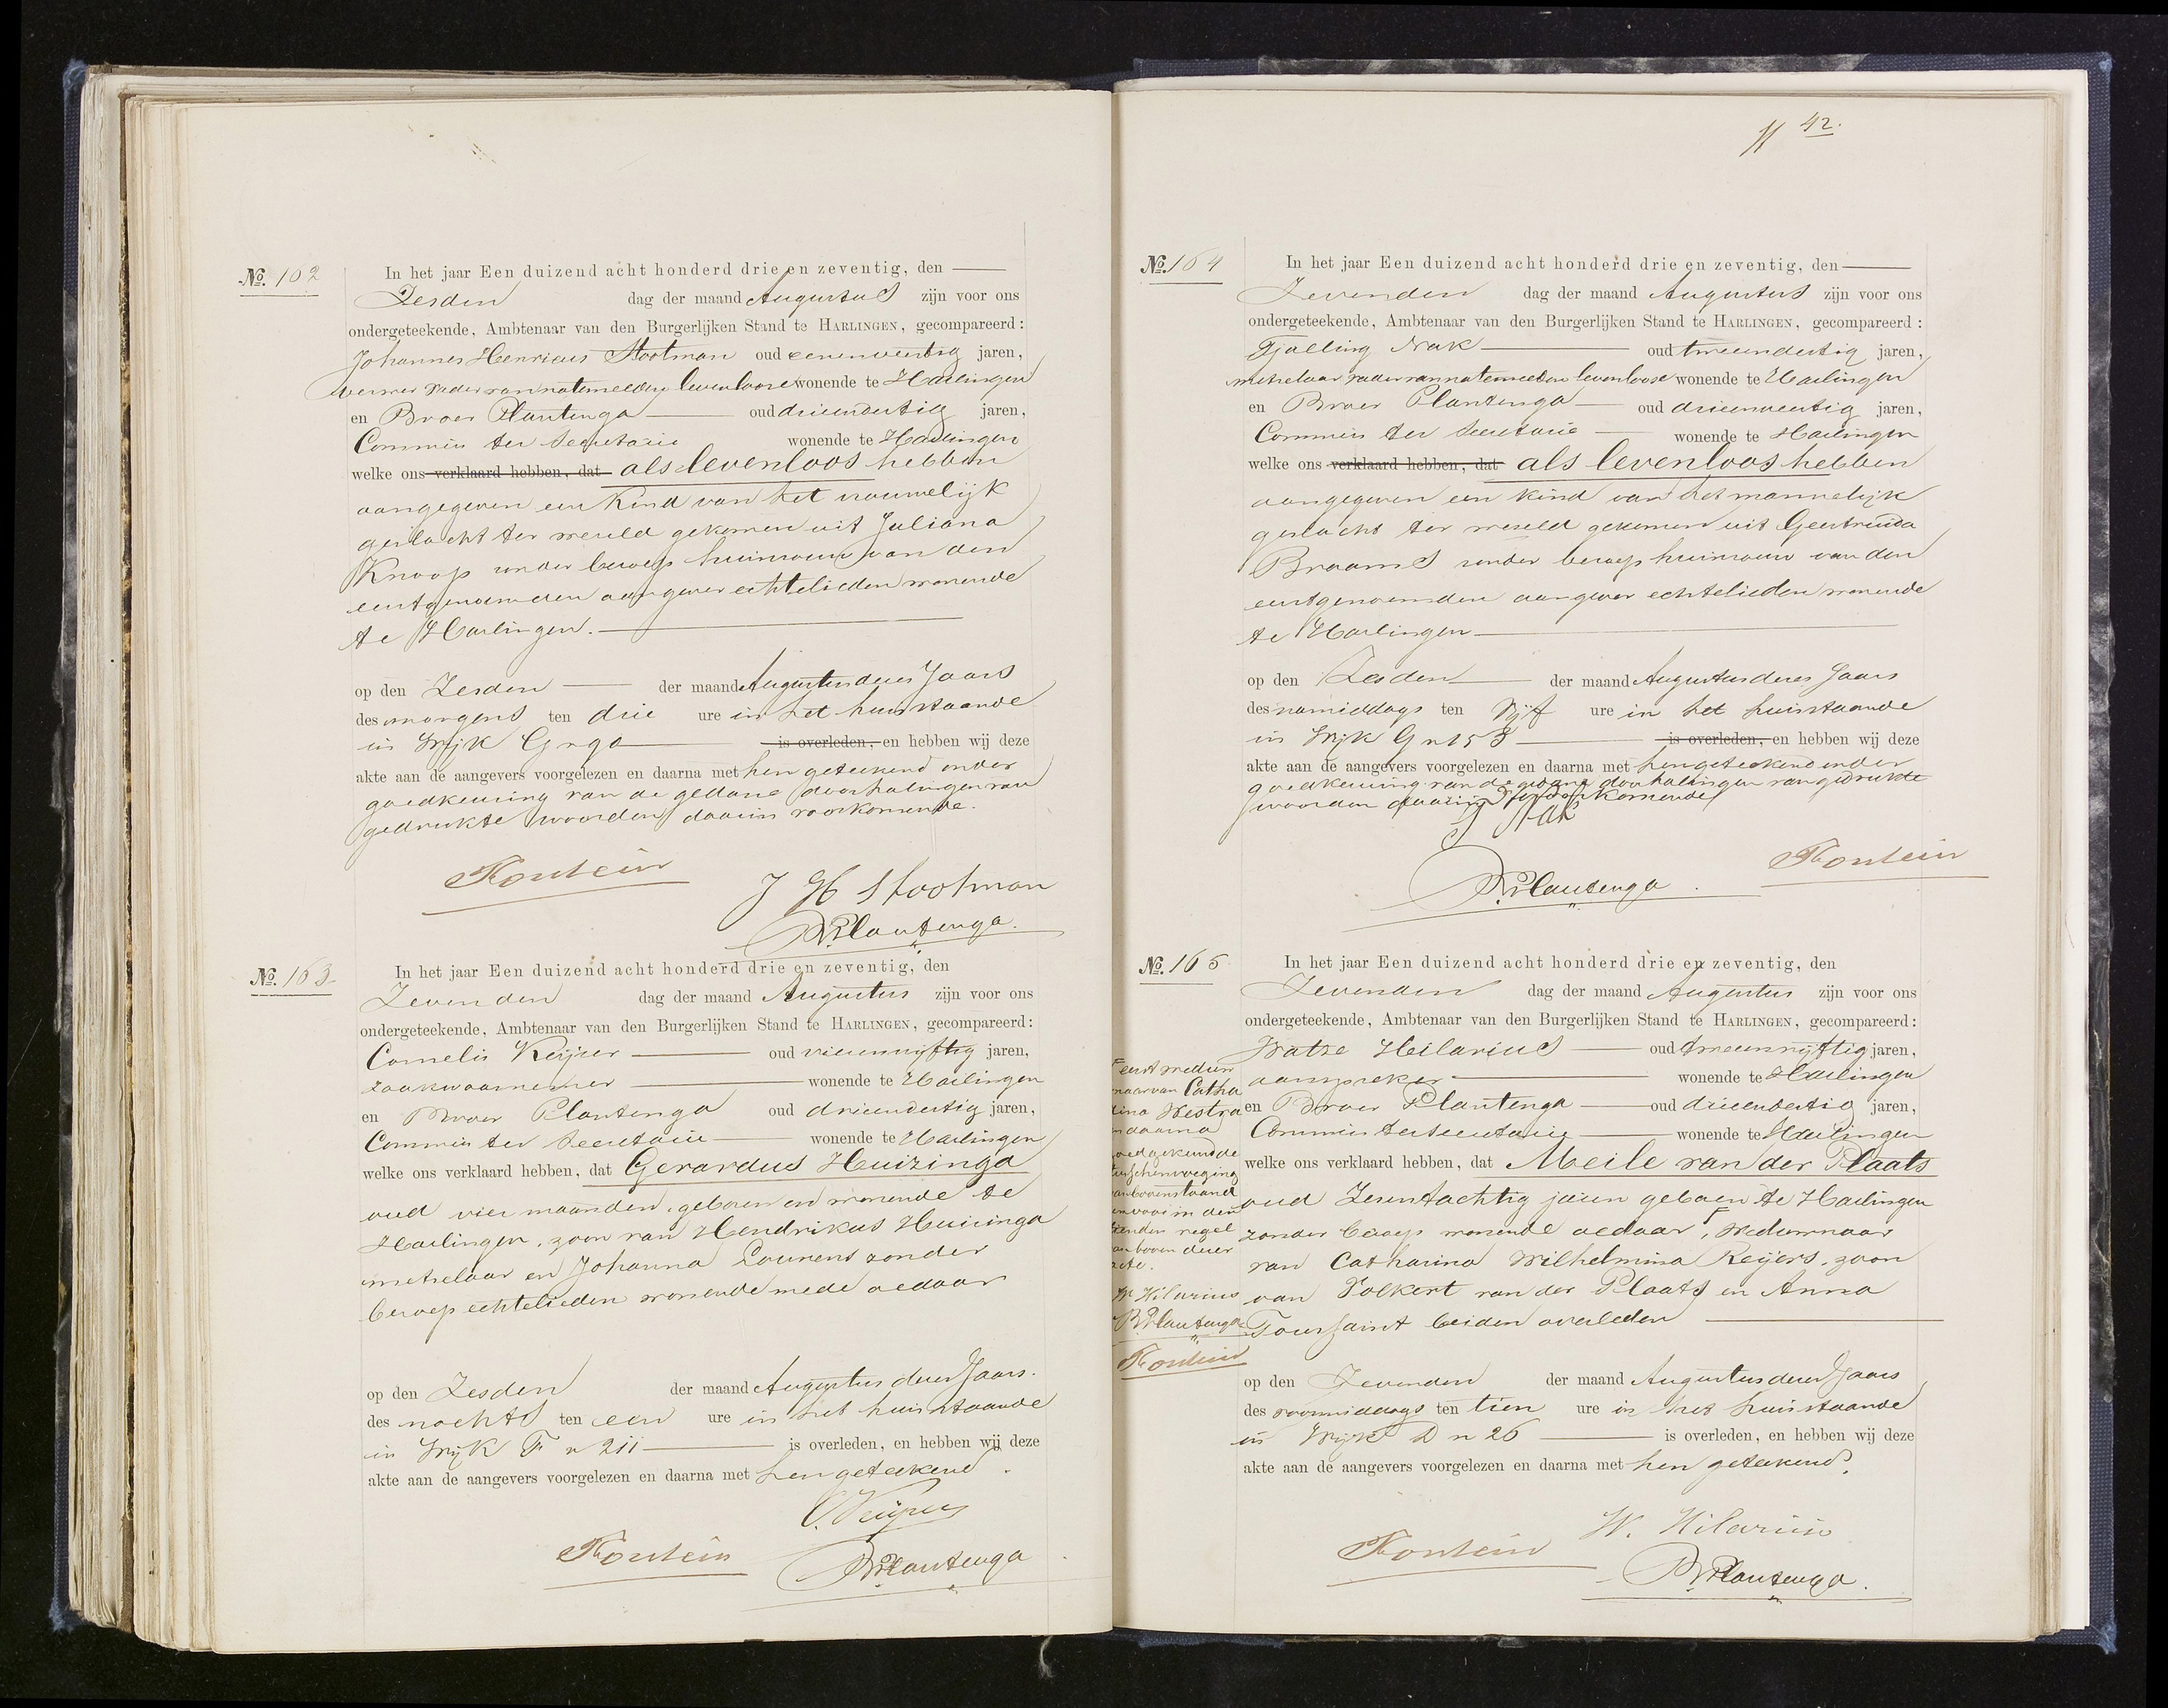 No. 162
In het jaar Een duizend acht honderd drie en zeventig, den
Zesden dag der maand Augustus zijn voor ons
ondergeteekende, Ambtenaar van den Burgerlijken Stand te HARLINGEN, gecompareerd:
Johannes Henricus Stootman oud eenenveertig jaren,
wever vader van natemelden levenloose wonende te Harlingen
en Broer Plantenga oud drieendertig jaren,
Commies ter Secretarie wonende te Harlingen
welke ons verklaard hebben, dat als levenloos hebben
aangegeven een kind van het vrouwelijk
geslacht ter wereld gekomen uit Juliana
Knoop zonder beroep huisvrouw van den
eerstgenoemden aangever echtelieden wonende
te Harlingen.
op den Zesden der maand Augustus dezes Jaars
des morgens ten drie ure in het huis staande
in Wijk G
is overleden, en hebben wij deze
akte aan de aangevers voorgelezen en daarna met hen geteekend onder
goedkeuring van de gedane doorhalingen van
gedrukte woorden daarin voorkomende.
Fontein
J H Stootman
B. Plantenga.
No. 163
In het jaar Een duizend acht honderd drie en zeventig, den
Zevenden dag der maand Augustus zijn voor ons
ondergeteekende, Ambtenaar van den Burgerlijken Stand te HARLINGEN, gecompareerd:
Cornelis Keijzer oud jaren,
zaakwaarnemer wonende te Harlingen
en Broer Plantenga oud drieendertig jaren,
Commies ter Secretarie wonende te Harlingen
welke ons verklaard hebben, dat Gerardus Huizinga
oud vier maanden, geboren en wonende te
Harlingen, zoon van Hendrikus Huizinga
metselaar en Johanna Lourens zonder
beroep echtelieden wonende mede aldaar
op den Zesden der maand Augustus dezes Jaars.
des nachts ten een ure in het huis staande
in Wijk F n 211 is overleden, en hebben wij deze
akte aan de aangevers voorgelezen en daarna met hen geteekend.
Fontein
B. Plantenga
42.
No. 164
In het jaar Een duizend acht honderd drie en zeventig, den
Zevenden dag der maand Augustus zijn voor ons
ondergeteekende, Ambtenaar van den Burgerlijken Stand te HARLINGEN, gecompareerd:
Tjalling Nak oud tweeendertig jaren,
metselaar vader van natemelden levenloose wonende te Harlingen
en Broer Plantenga oud jaren,
Commies ter Secretarie wonende te Harlingen
welke ons verklaard hebben, dat als levenloos hebben
aangegeven een kind van het mannelijk
geslacht ter wereld gekomen uit Geertruida
Braams zonder beroep huisvrouw van den
eerstgenoemden aangever echtelieden wonende
te Harlingen
op den Zesden der maand Augustus dezes Jaars
des namiddags ten Vijf ure in het huis staande
in Wijk G n 158 is overleden, en hebben wij deze
akte aan de aangevers voorgelezen en daarna met hen geteekend onder
goedkeuring van de gedane doorhalingen van gedrukte
woorden daarin voorkomende
Nak
Fontein
B. Plantenga.
No. 165
In het jaar Een duizend acht honderd drie en zeventig, den
Zevenden dag der maand Augustus zijn voor ons
ondergeteekende, Ambtenaar van den Burgerlijken Stand te HARLINGEN, gecompareerd:
Watze Heilarius oud tweeenvijftig jaren,
aanspreker wonende te Harlingen
en Broer Plantenga oud drieendertig jaren,
Commies ter Secretarie wonende te Harlingen
welke ons verklaard hebben, dat Meile van der Plaats
oud Zesentachtig jaren geboren te Harlingen
zonder beroep wonende aldaar, F Weduwnaar
van Catharina Wilhelmina Reijers, zoon
van Volkert van der Plaats en Anna
Toussaint beiden overleden
op den Zevenden der maand Augustus dezes Jaars
des voormiddags ten tien ure in het huis staande
in Wijk D n 26 is overleden, en hebben wij deze
akte aan de aangevers voorgelezen en daarna met hen geteekend.
W. Hilarius
Fontein
B. Plantenga.
F eerst weduw
naar van Catha
rina Westra
en daarna
goedgekeurd de
tusschenvoeging
van bovenstaand
renvooi in den
tienden regel
van boven dezer
acte.
W. Hilarius
B. Plantenga
Fontein